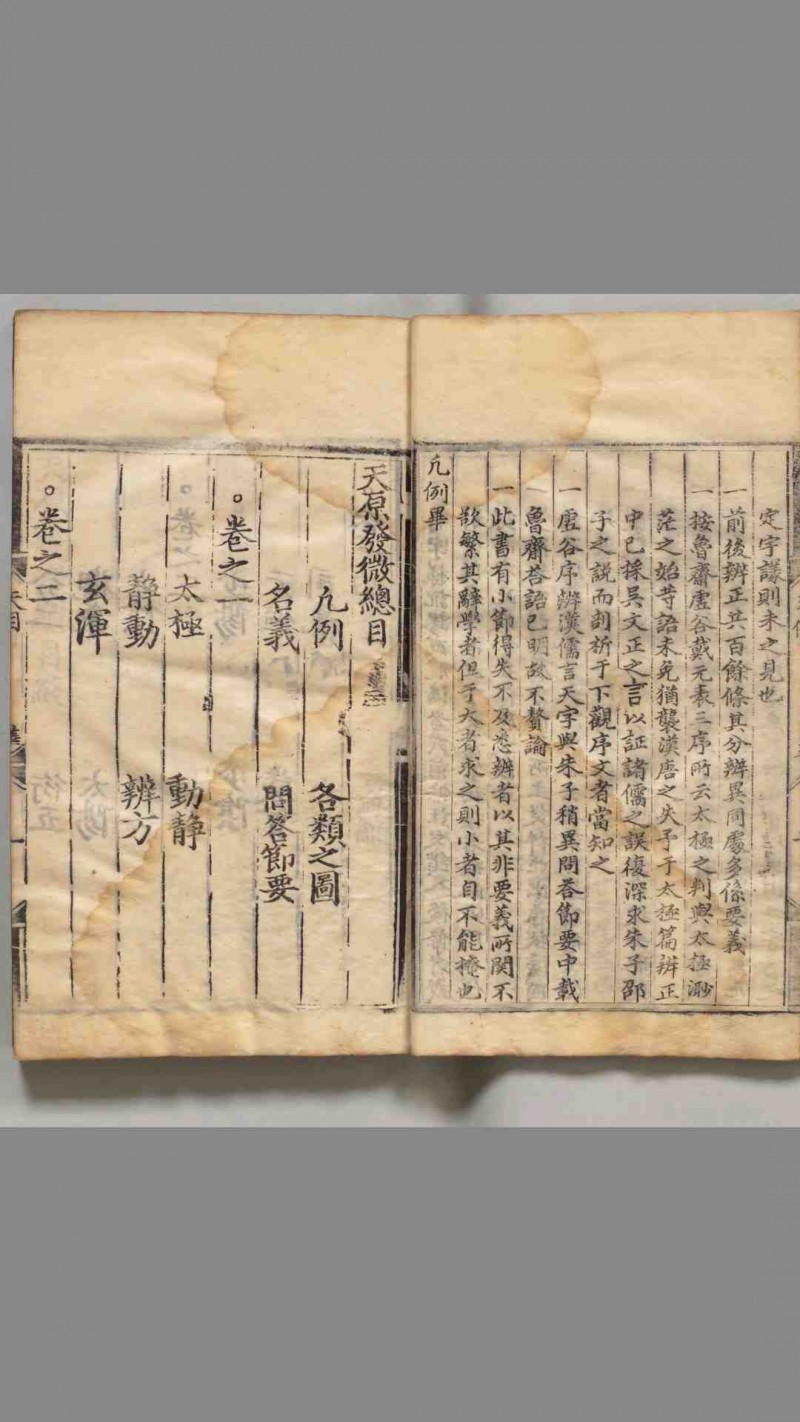 定宇議則未之見也
一前後辨正共百餘條其分辨異同處多係要義
一按魯齋虛谷戴元表三序所云太極之判與太極渺
茫之始等語未免猶襲漢唐之失予于太極篇辨正
中已採吳文正之言以証諸儒之誤復深求朱子邵
子之說而剖析于下觀序文者當知之
一虛谷序辨漢儒言天字與朱子稍異問荅節要中載
魯齋荅語已明故不贅論
一此書有小節得失不及悉辨者以其非要義所関不
欲繁其辭學者但于大者求之則小者自不能掩也
凢例畢
天原發微總目
凢例 各類之圖
名義 問答節要
○卷之一
太極 動静
静動 辨方
玄渾
○卷之二